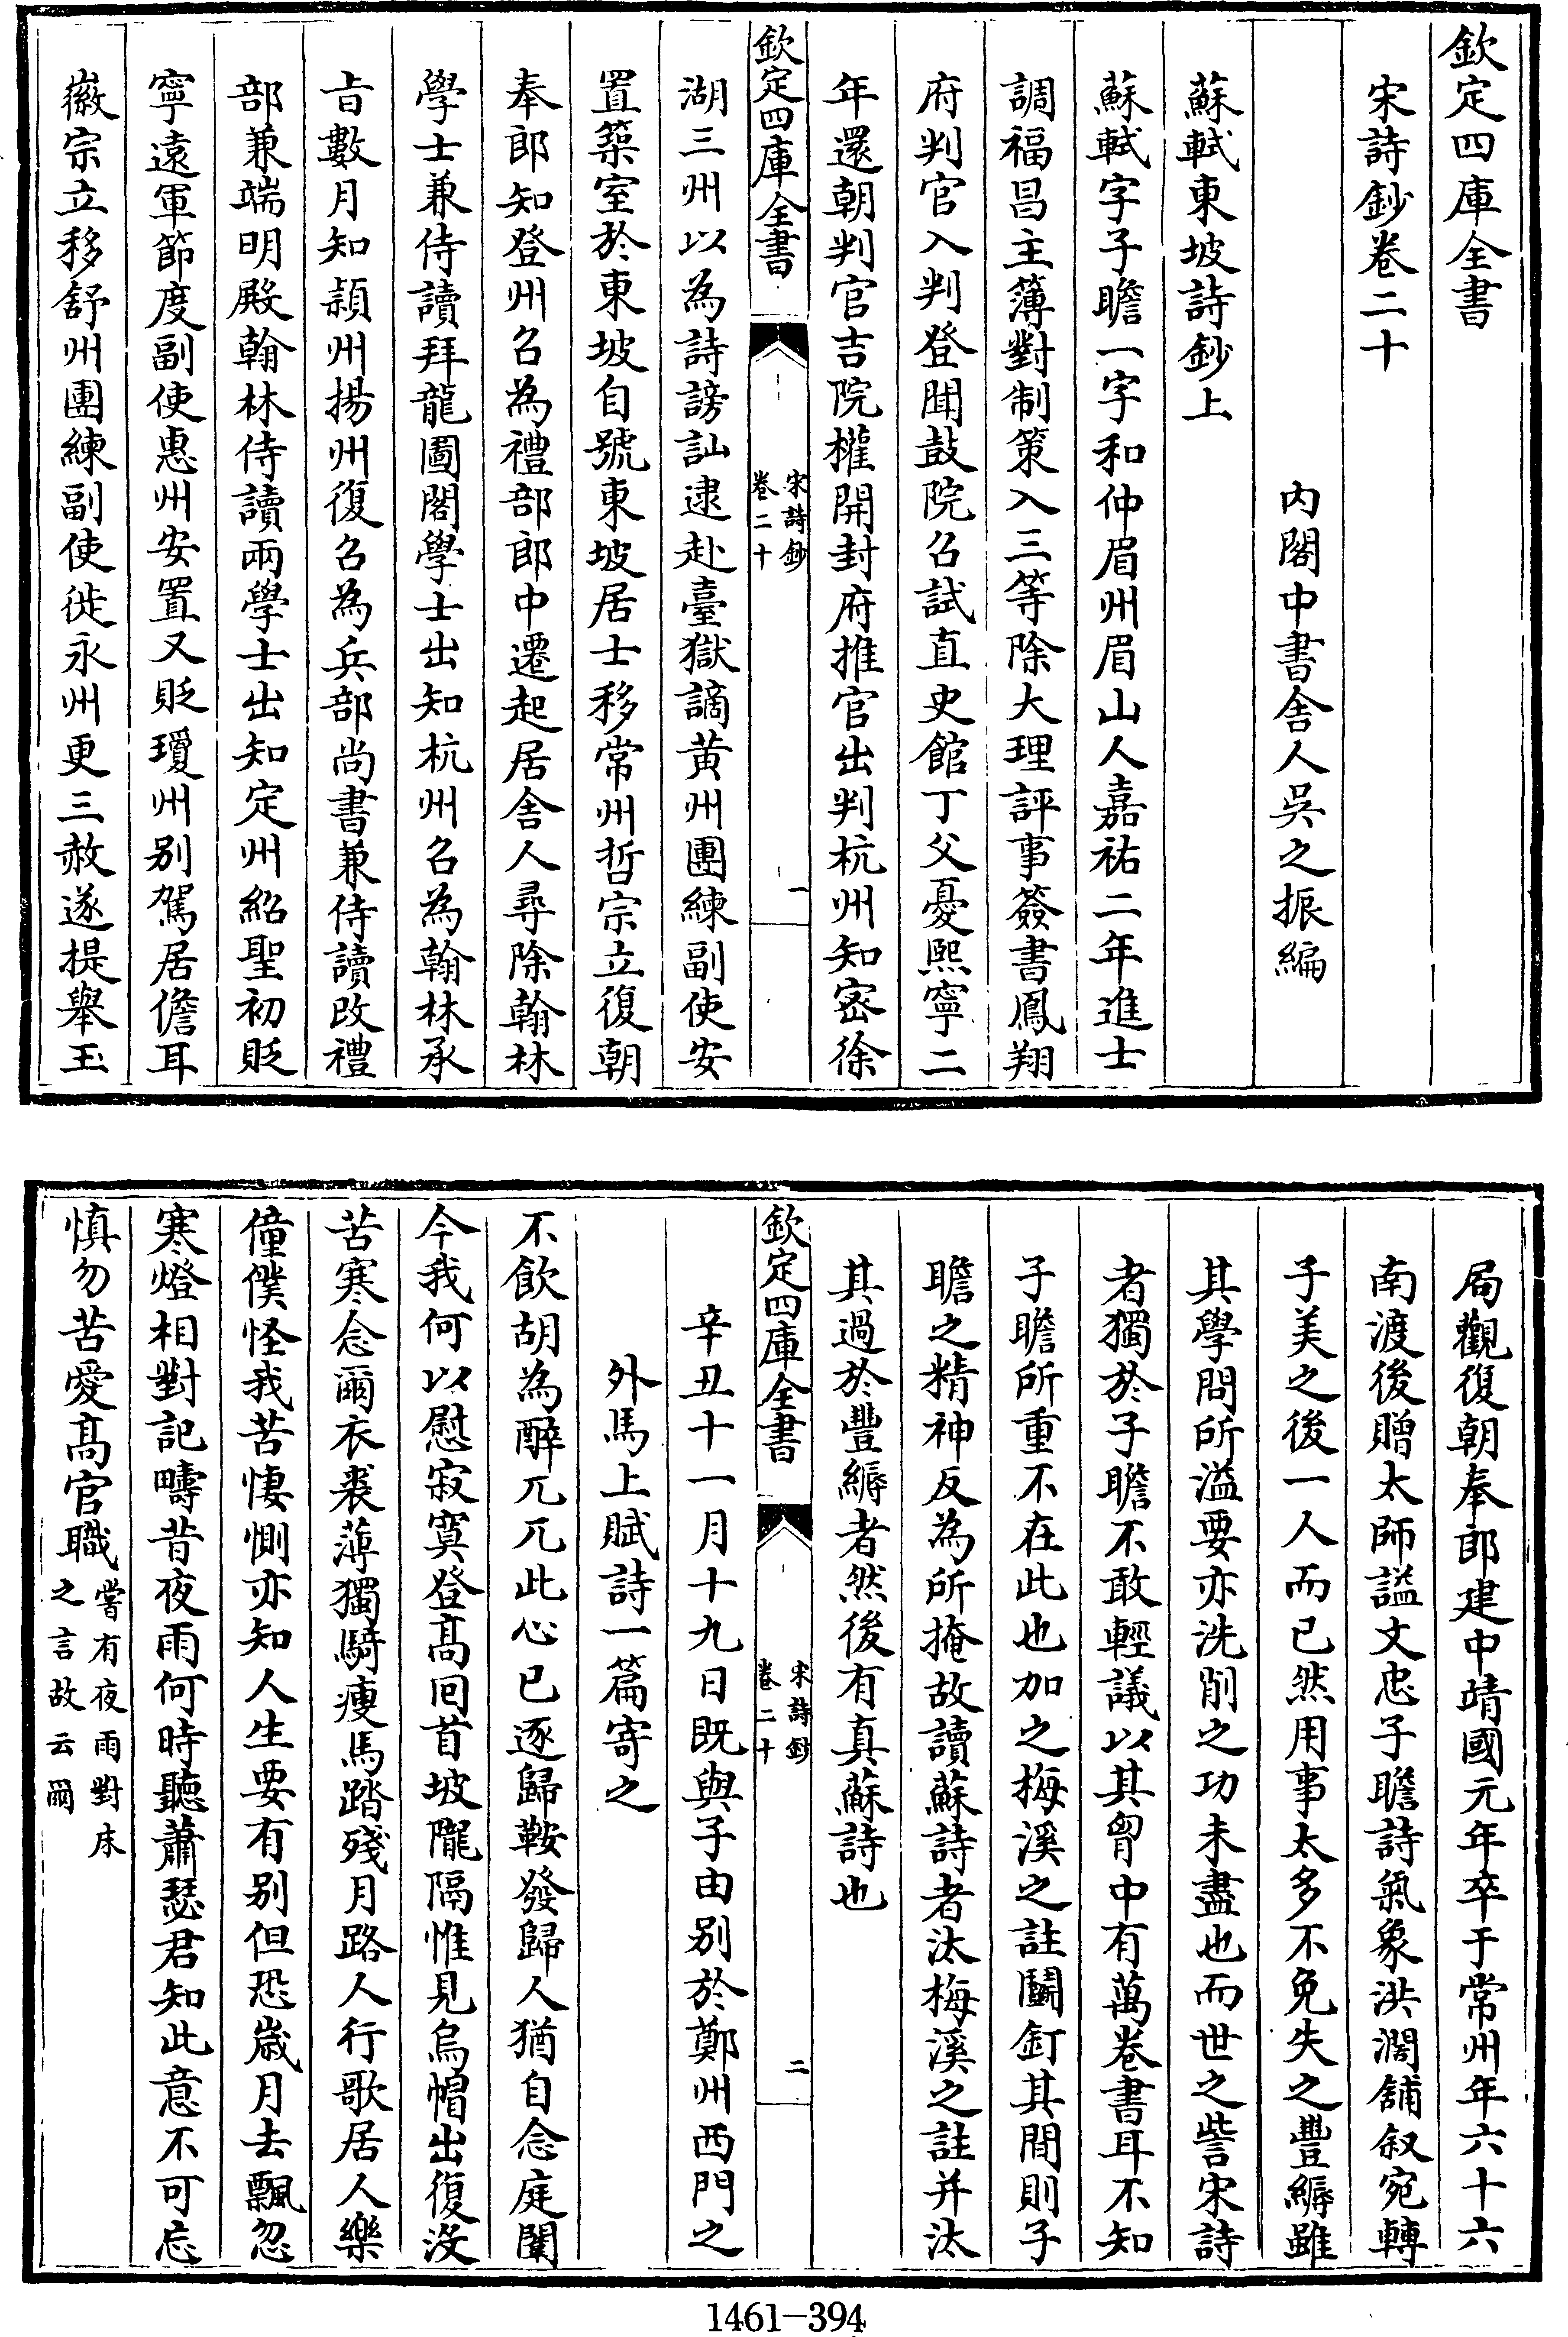 欽定四庫全書
宋詩鈔卷二十
內閣中書舍人吳之振編
蘇軾東坡詩鈔上
蘇軾字子瞻一字和仲眉州眉山人嘉祐二年進士
調福昌主簿對制策入三等除大理評事簽書鳳翔
府判官入判登聞鼓院召試直史館丁父憂熙寧二
年還朝判官吉院權開封府推官出判杭州知密徐
欽定四庫全書
宋詩鈔
卷二十
一
湖三州以為詩謗訕逮赴臺獄謫黃州團練副使安
置築室於東坡自號東坡居士移常州哲宗立復朝
奉郎知登州召為禮部郎中遷起居舍人尋除翰林
學士兼侍讀拜龍圖閣學士出知杭州召為翰林承
旨數月知潁州揚州復召為兵部尚書兼侍讀改禮
部兼端明殿翰林侍讀兩學士出知定州紹聖初貶
寧遠軍節度副使惠州安置又貶瓊州別駕居儋耳
徽宗立移舒州團練副使徙永州更三赦遂提舉玉
局觀復朝奉郎建中靖國元年卒于常州年六十六
南渡後贈太師諡文忠子瞻詩氣象洪濶鋪叙宛轉
子美之後一人而已然用事太多不免失之豐縟雖
其學問所溢要亦洗削之功未盡也而世之訾宋詩
者獨於子瞻不敢輕議以其胷中有萬卷書耳不知
子瞻所重不在此也加之梅溪之註鬭飣其間則子
瞻之精神反為所掩故讀蘇詩者汰梅溪之註并汰
其過於豐縟者然後有真蘇詩也
欽定四庫全書
宋詩鈔
卷二十
二
辛丑十一月十九日既與子由別於鄭州西門之
外馬上賦詩一篇寄之
不飲胡為醉兀兀此心已逐歸鞍發歸人猶自念庭闈
今我何以慰寂寞登髙回首坡隴隔惟見烏帽出復沒
苦寒念爾衣裘薄獨騎瘦馬踏殘月路人行歌居人樂
僮僕怪我苦悽惻亦知人生要有別但恐歲月去飄忽
寒燈相對記疇昔夜雨何時聽蕭瑟君知此意不可忘
慎勿苦愛髙官職嘗有夜雨對床
之言故云爾
1461-394